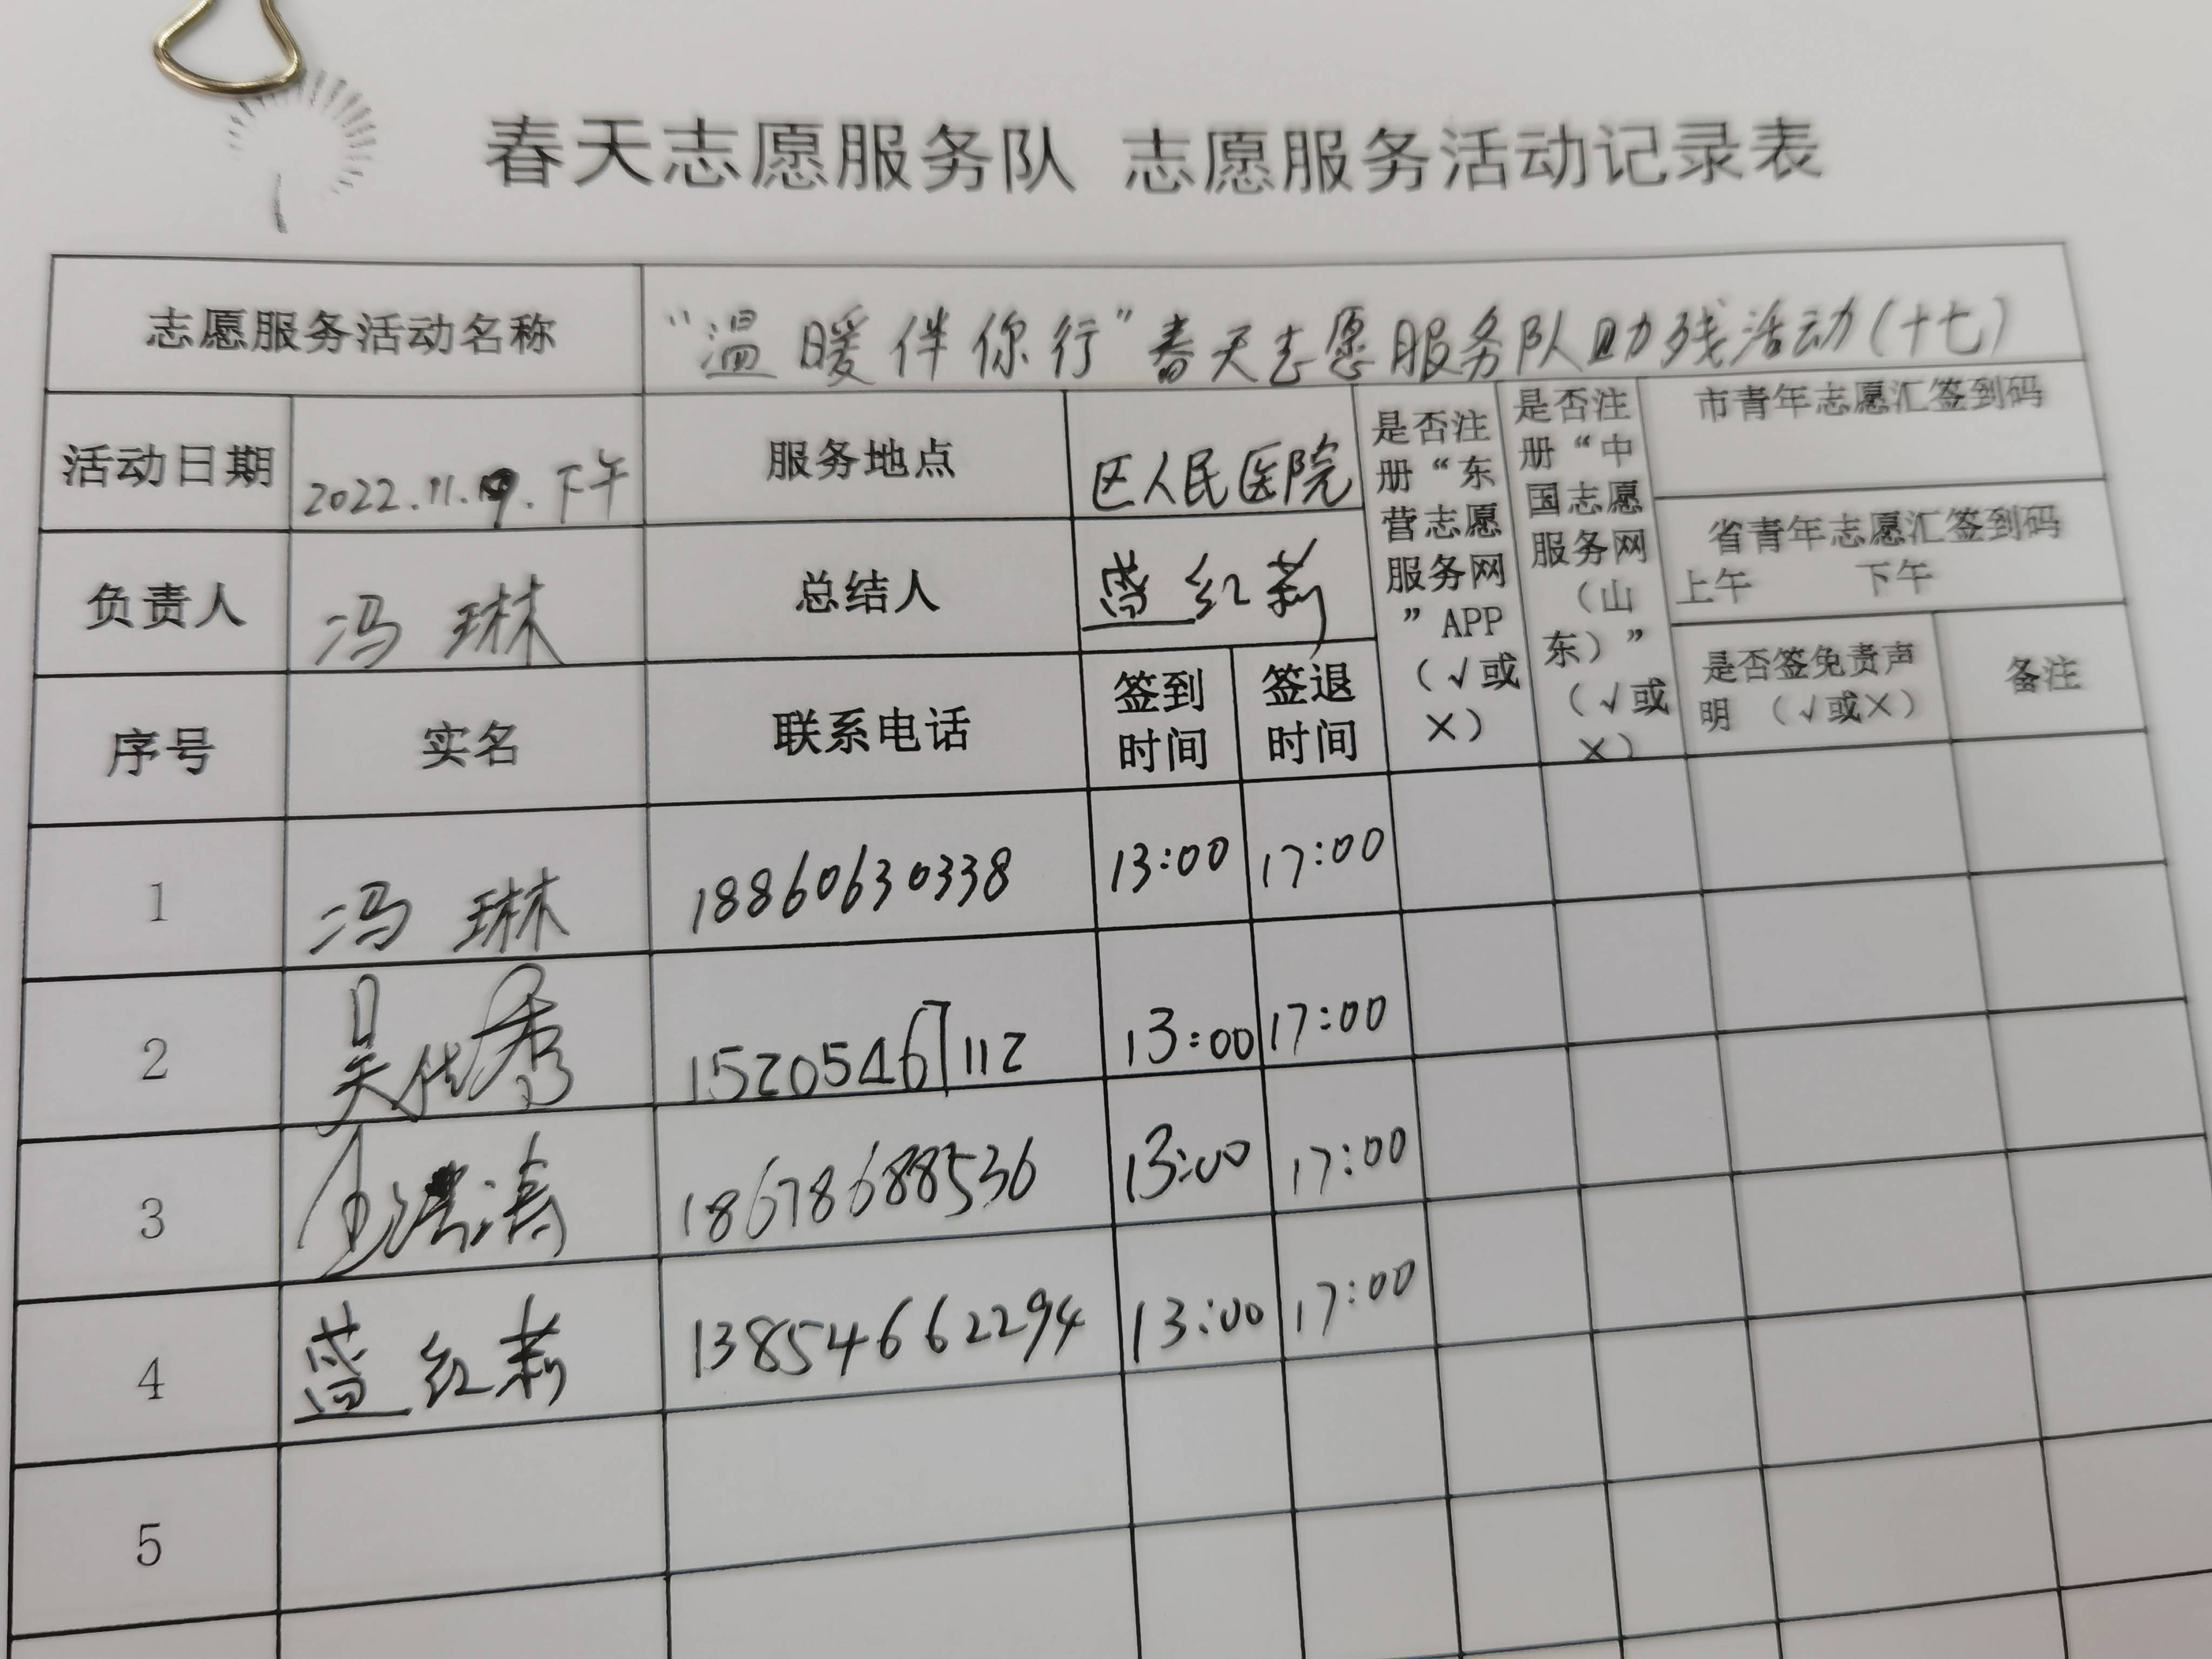 春天志愿服务队 志愿服务活动记录表
志愿服务活动名称 “温暖伴你行”春天志愿服务队助残活动(十七)
活动日期 2022.11.19.下午 服务地点 区人民医院
负责人 冯琳 总结人 蓝红莉
是否注
册“东
营志愿
服务网
”APP
(√或
×)
是否注
册“中
国志愿
服务网
(山
东)”
(√或
×)
市青年志愿汇签到码
省青年志愿汇签到码
上午 下午
序号 实名 联系电话
签到
时间
签退
时间
是否签免责声
明 (√或×)
备注
1 冯琳 18860630338 13:00 17:00
2 吴代秀 15205467112 13:00 17:00
3 18678688536 13:00 17:00
4 蓝红莉 13854662294 13:00 17:00
5